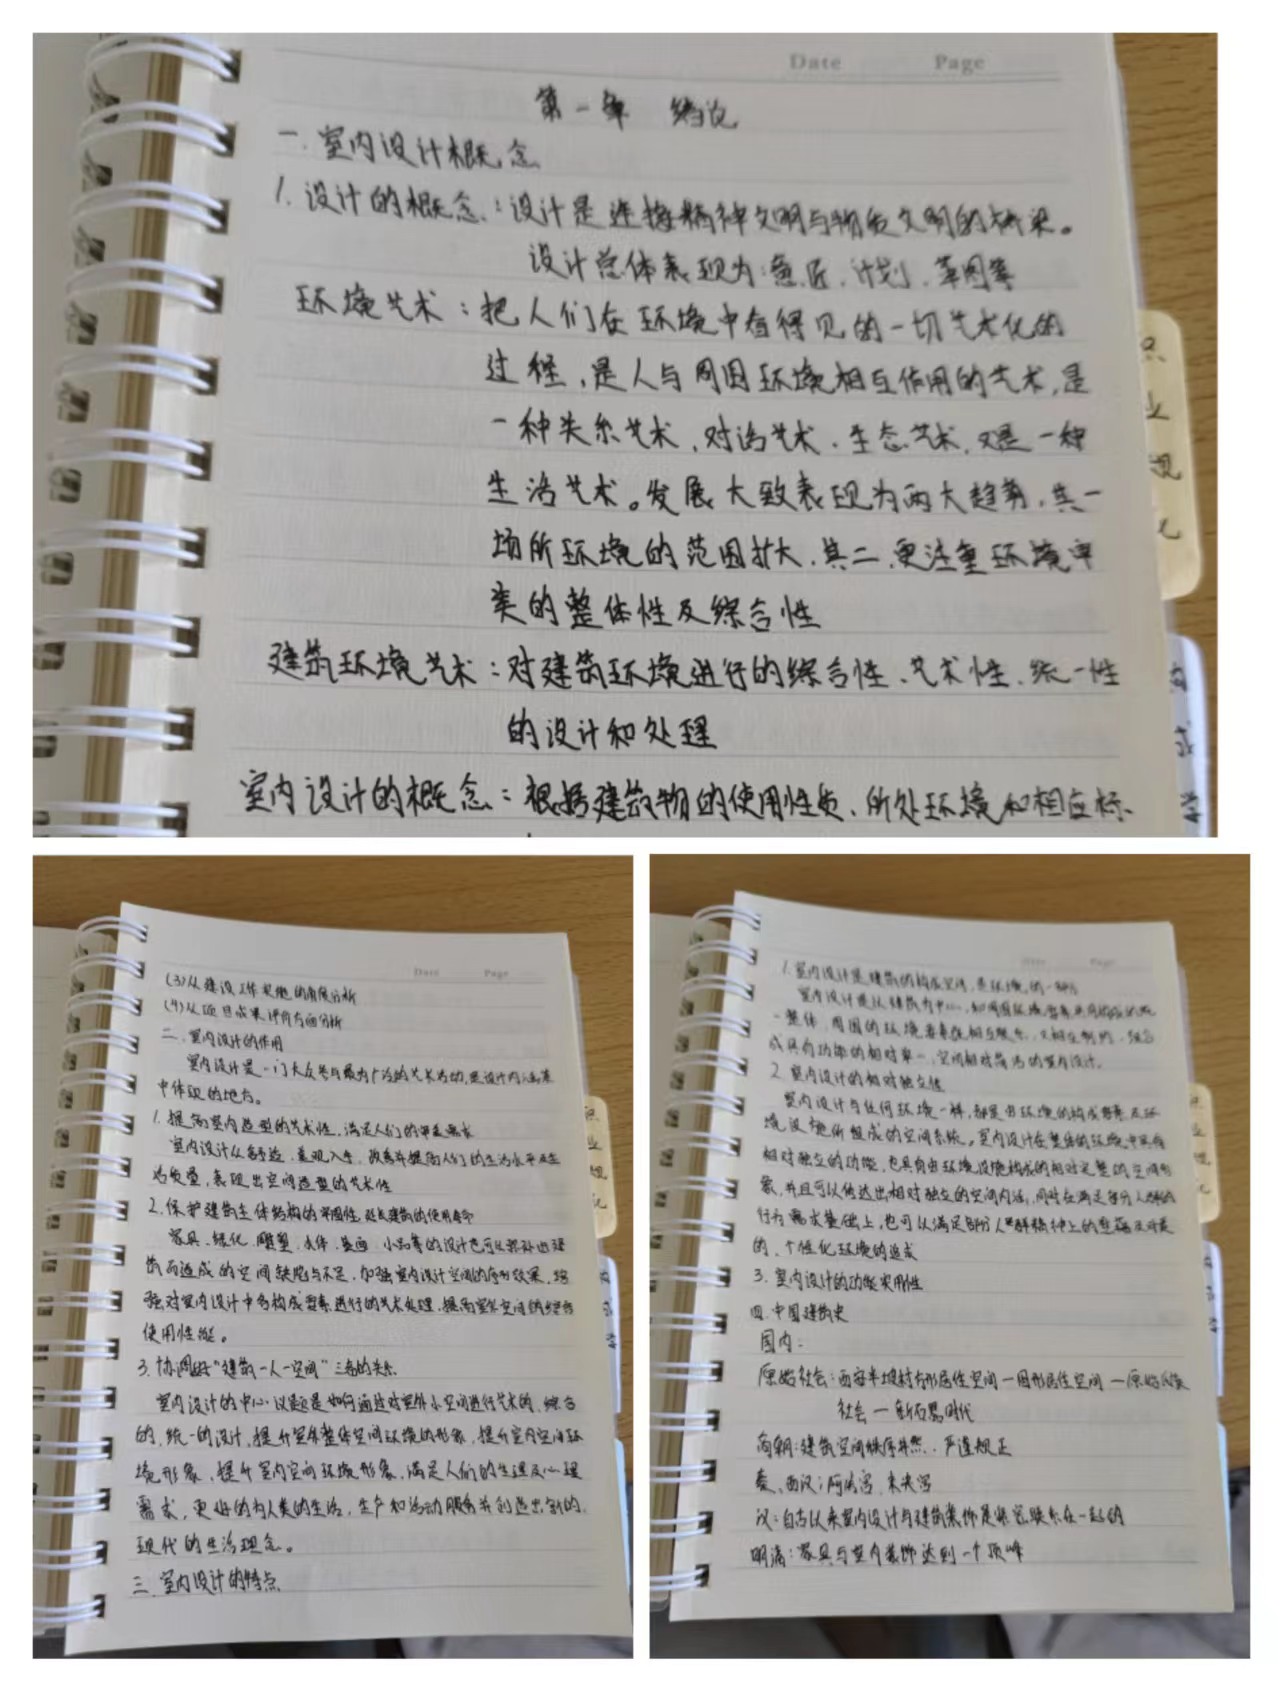 Date Page
第一章 绪论
一.室内设计概念
1.设计的概念:设计是连接精神文明与物质文明的桥梁。
设计总体表现为:意匠、计划、草图等
环境艺术:把人们在环境中看得见的一切艺术化的
过程,是人与周围环境相互作用的艺术,是
一种关系艺术,对话艺术、生态艺术,又是一种
生活艺术。发展大致表现为两大趋势,其一
场所环境的范围扩大,其二,更注重环境中
类的整体性及综合性
建筑环境艺术:对建筑环境进行的综合性、艺术性、统一性
的设计和处理
室内设计的概念:根据建筑物的使用性质、所处环境和相应标
业
规
化
学
Date Page
(3)从建设工作实施的角度分析
(4)从项目成果评价方面分析
二.室内设计的作用
室内设计是一门大众参与最为广泛的艺术活动,是设计内涵集
中体现的地方。
1.提高室内造型的艺术性,满足人们的审美需求
室内设计从舒适、美观入手,改善并提高人们的生活水平及生
活质量,表现出空间造型的艺术性
2.保护建筑主体结构的牢固性,延长建筑的使用寿命
家具、绿化、雕塑、水体、壁画、小品等的设计也可以弥补由建
筑而造成的空间缺陷与不足,加强室内设计空间的序列效果,增
强对室内设计中各构成要素进行的艺术处理,提高室内空间的综合
使用性能。
3.协调好“建筑一人一空间”三者的关系
室内设计的中心议题是如何通过对室外小空间进行艺术的、综合
的、统一的设计,提升室内整体空间环境的形象,提升室内空间环
境形象,提升室内空间环境形象,满足人们的生理及心理
需求,更好的为人类的生活,生产和活动服务并创造出新的,
现代的生活理念。
三.室内设计的特点
Page
1.室内设计是建筑的构成空间,是环境的一部分
室内设计是以建筑为中心,和周围环境要素共同构成的统
一整体,周围的环境要素既相互联系,又相互制约,组合
成具有功能的相对单一,空间相对简洁的室内设计。
2.室内设计的相对独立性
室内设计与任何环境一样,都是由环境的构成要素及环
境设施所组成的空间系统。室内设计在整体的环境中具有
相对独立的功能,也具有由环境设施构成的相对完整的空间形
象,并且可以传达出相对独立的空间内涵,同时在满足部分人群的
行为需求基础上,也可以满足部分人群精神上的慰藉及对美
的、个性化环境的追求
3.室内设计的功能实用性
四.中国建筑史
国内:
原始社会:西安半坡村方形居住空间一圆形居住空间一原始氏族
社会一新石器时代
商朝:建筑空间秩序井然、严谨规正
秦、西汉:阿房宫、未央宫
汉:自古以来室内设计与建筑装饰是紧密联系在一起的
明清:家具与室内装饰达到一个顶峰
业
规
化
学